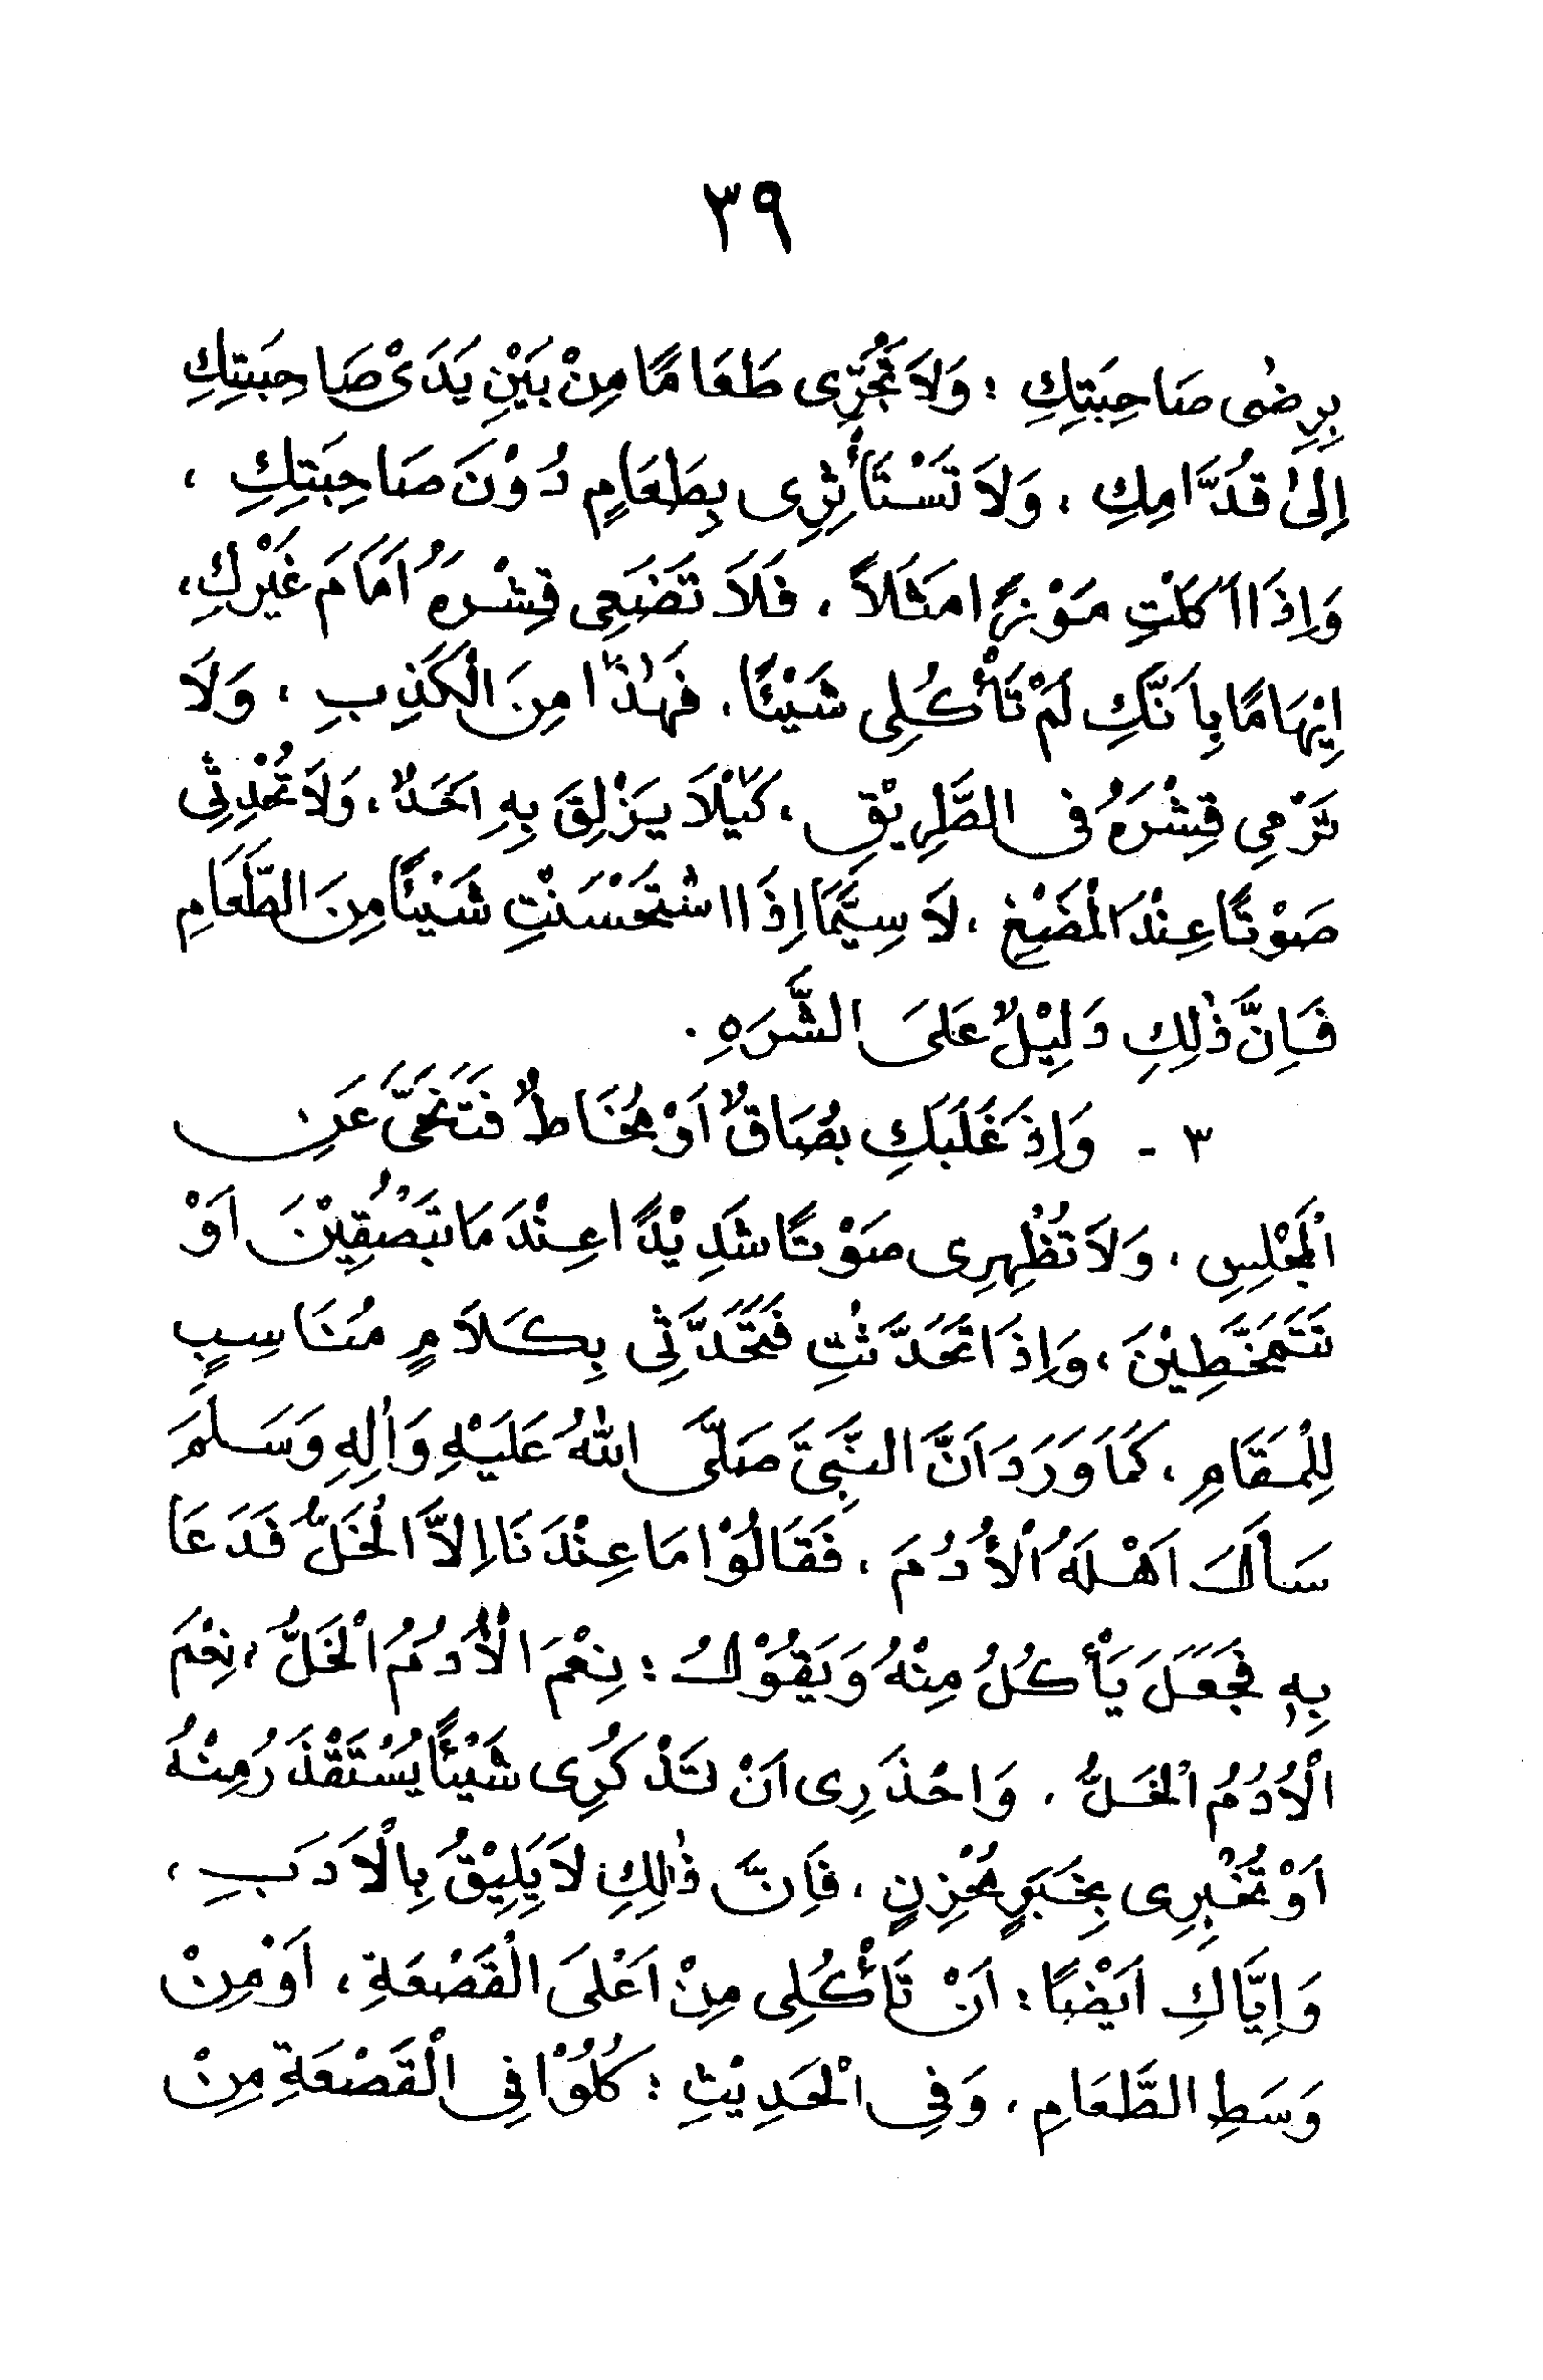 ٣٩
بِرِضٰى صَاحِبَتِكِ : وَلَا تَجُرِّى طَعَامًا مِنْ بَيْنِ يَدَىْ صَاحِبَتِكِ
اِلىٰ قُدَّامِكِ ، وَلَا تَسْتَأْثِرِى بِطَعَامٍ دُوْنَ صَاحِبَتِكِ ،
وَاِذَا اَكَلْتِ مَوْزًا مَثَلًا ، فَلَا تَضَعِى قِشْرَهُ اَمَامَ غَيْرِكِ ،
اِيْهَامًا بِاَنَّكِ لَمْ تَأْكُلِى شَيْئًا ، فَهٰذَا مِنَ الْكَذِبِ ، وَلَا
تَرْمِي قِشْرَهُ فى الطَّرِيْقِ ، كَيْلَا يَزْلِقَ بِهِ اَحَدٌ ، وَلَا تُحْدِثِى
صَوْتًا عِنْدَ الْمَضْغِ ، لَا سِيَّمَا اِذَا اسْتَحْسَنْتِ شَيْئًا مِنَ الطَّعَامِ
فَاِنَّ ذٰلِكِ دَلِيْلٌ عَلَى الشَّرَهِ .
٣ - وَاِذَ غَلَبَكِ بُصَاقٌ اَوْ مُخَاطٌ فَتَنَحَّىَ عَنِ
الْمَجْلِسِ ، وَلَا تُظْهِرِى صَوْتًا شَدِيْدًا عِنْدَمَا تَبْصُقِيْنَ اَوْ
تَتَمَخَّطِيْنَ ، وَاِذَا تَحَدَّثْتِ فَتَحَدَّثِى بِكَلَامٍ مُنَاسِبٍ
لِلْمَقَامِ ، كَمَا وَرَدَ اَنَّ النَّبِىَّ صَلَّى اللهُ عَلَيْهِ وَاٰلِهِ وَسَلَّمَ
سَاَلَ اَهْلَهُ الْأُدُمَ ، فَقَالُوْا مَا عِنْدَنَا اِلَّا الْخَلُّ فَدَعَا
بِهِ فَجَعَلَ يَأْكُلُ مِنْهُ وَيَقُوْلُ : نِعْمَ الْأُدُمُ الْخَلُّ ، نِعْمَ
الْاُدُمُ الْخَلُّ . وَاحْذَرِى اَنْ تَذْكُرِى شَيْئًا يُسْتَقْذَرُ مِنْهُ
اَوْ تُخْبِرِى بِخَبَرٍ مُحْزِنٍ ، فَاِنَّ ذٰلِكِ لَا يَلِيْقُ بِالْاَدَبِ ،
وَاِيَّاكِ اَيْضًا : اَنْ تَأْكُلِى مِنْ اَعْلَى الْقَصْعَةِ ، اَوْ مِنْ
وَسَطِ الطَّعَامِ ، وَفِى الْحَدِيْثِ : كُلُوْا فِى الْقَصْعَةِ مِنْ